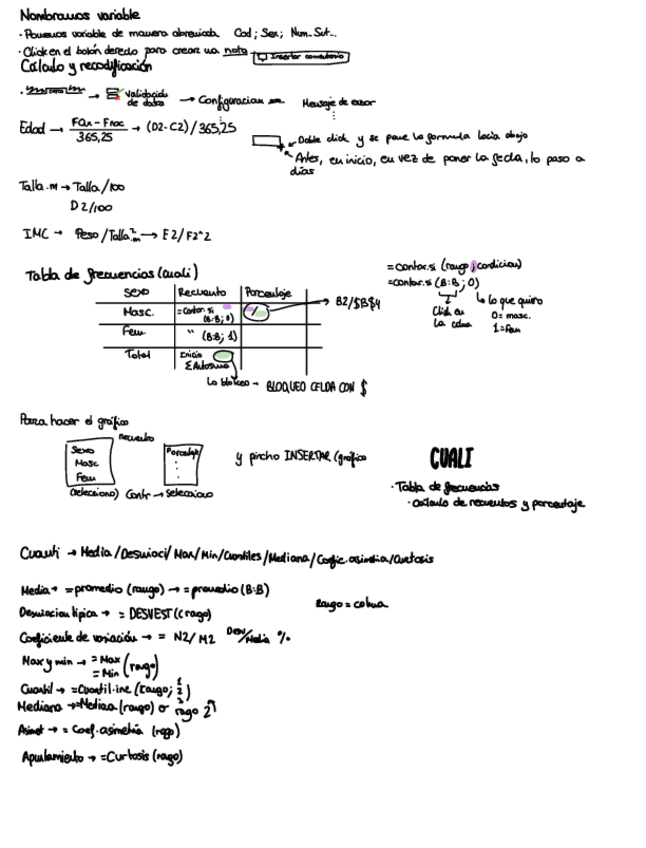 Nombramos variable
· Ponemos variable de manera abreviada. Cod; Sex; Num.Sut...
· Click en el botón derecho para crear una nota
Insertar comentario
Calculo y recodificación
→ Validación de datos → Configuracion Mensaje de error
Edad → FQx - Fnac / 365,25 → (D2-C2)/365,25
Doble click y se pone la formula hacia abajo
Antes, en inicio, en vez de poner la fecha, lo paso a dias
Talla.m → Talla/100
D2/100
IMC → Peso/Talla.m² → E2/F2^2
Tabla de frecuencias (cuali)
= contar.si (rango; condicion)
= contar.si (B:B; 0)
Click en la colma
lo que quiero
0= masc.
1= fem
Sexo Recuento Porcentaje
Masc. = contar.si (B:B; 0) → B2/$B$4
Fem " (B:B; 1)
Total Inicio ΣAutosuma
Lo bloqueo → BLOQUEO CELDA CON $
Para hacer el gráfico
recuento
Sexo
Masc
Fem
Porcentaje
(selecciono) Contr → selecciono
y pincho INSERTAR (grafico
CUALI
· Tabla de frecuencias
· calculo de recuentos y porcentaje
Cuanti → Media/Desviaci/Max/Min/Cuantiles/Mediana/Coefic.asimetria/Curtosis
Media → =promedio (rango) → =promedio (B:B)
Rango = colma
Desviacion tipica → = DESVEST (rango)
Coeficiente de variación → = N2/M2 Desv/Media %
Max y min → = Max
= Min (rango)
Cuantil → =Cuantil.inc (rango; 1 2 3)
Mediana → =Mediana (rango) o rango 2
Asimet → = Coef.asimetria (rango)
Apuntamiento → =Curtosis (rango)